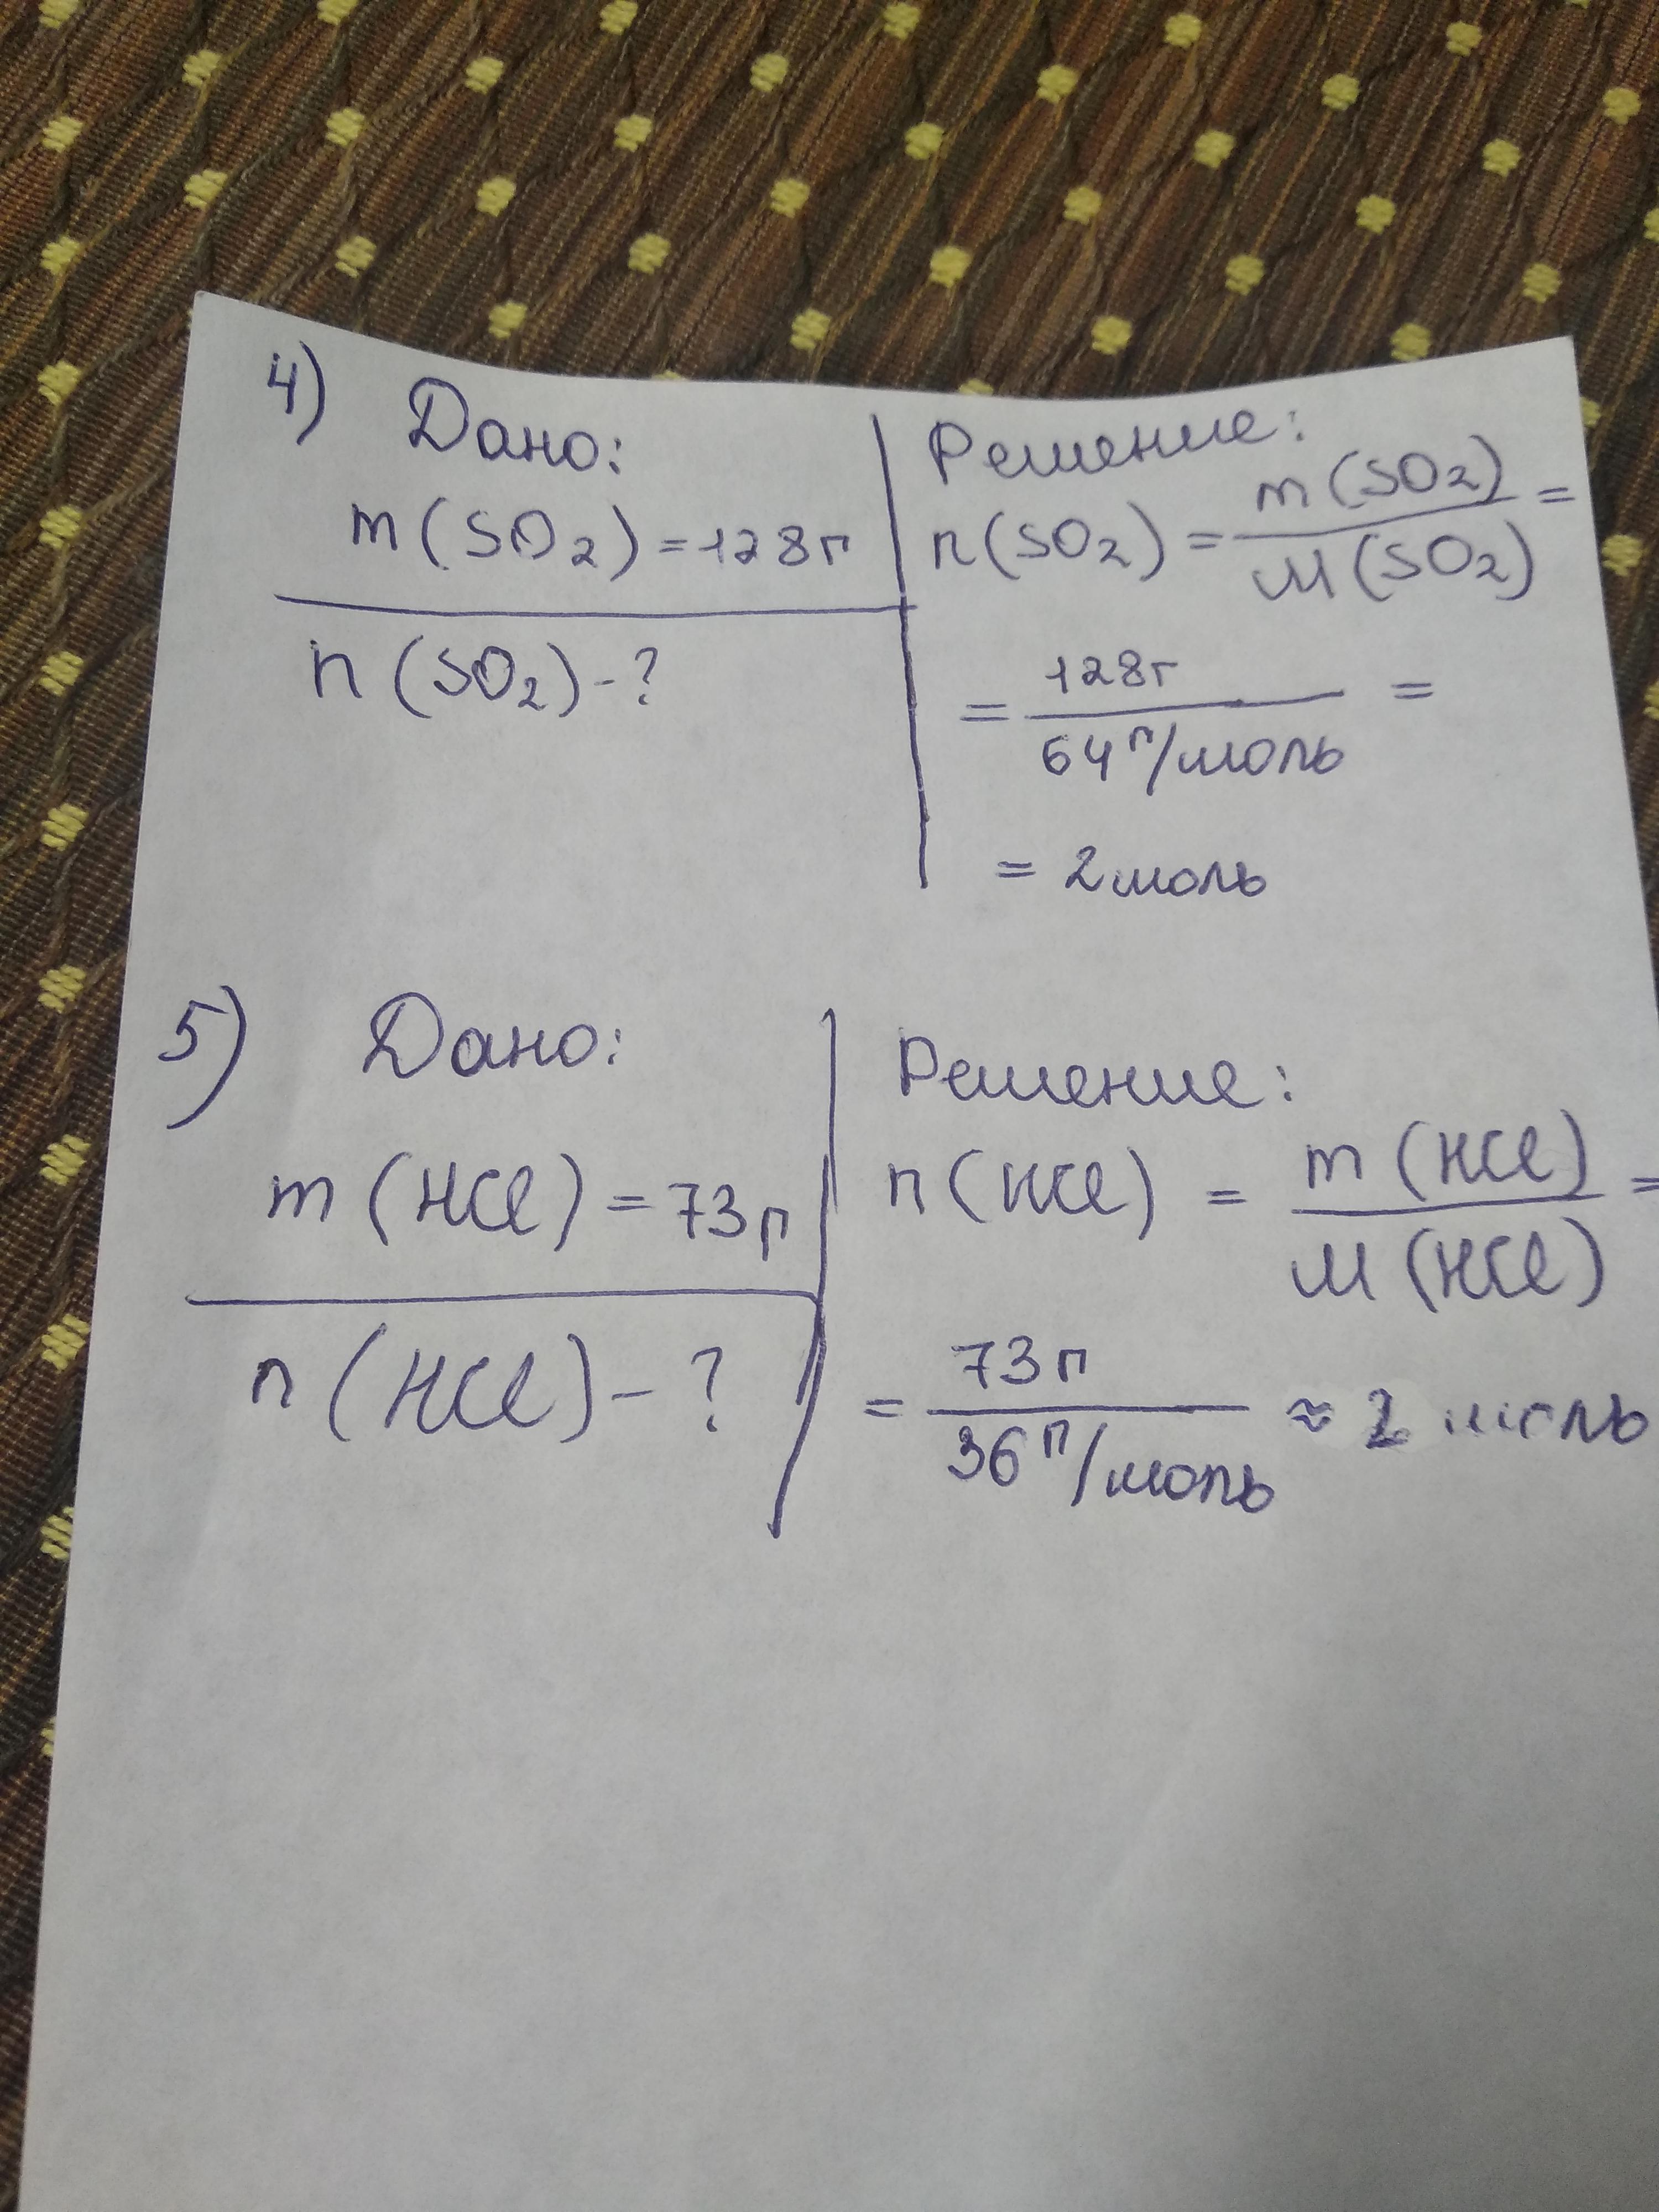 4) Дано:
m(SO₂)=128г
n(SO₂)-?
Решение:
n(SO₂) = m(SO₂)/M(SO₂) =
= 128г/64г/моль =
= 2моль
5) Дано:
m(HCl)=73г
n(HCl)-?
Решение:
n(HCl) = m(HCl)/M(HCl) =
= 73г/36г/моль ≈ 2 моль